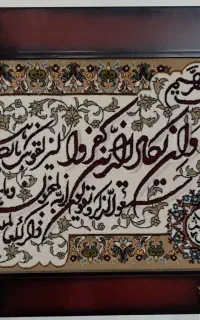 وان یکاد الذین کفروا لیزلقونک
سمعوا الذکر و یقولون انه لمجنون وما
ذکر للعا